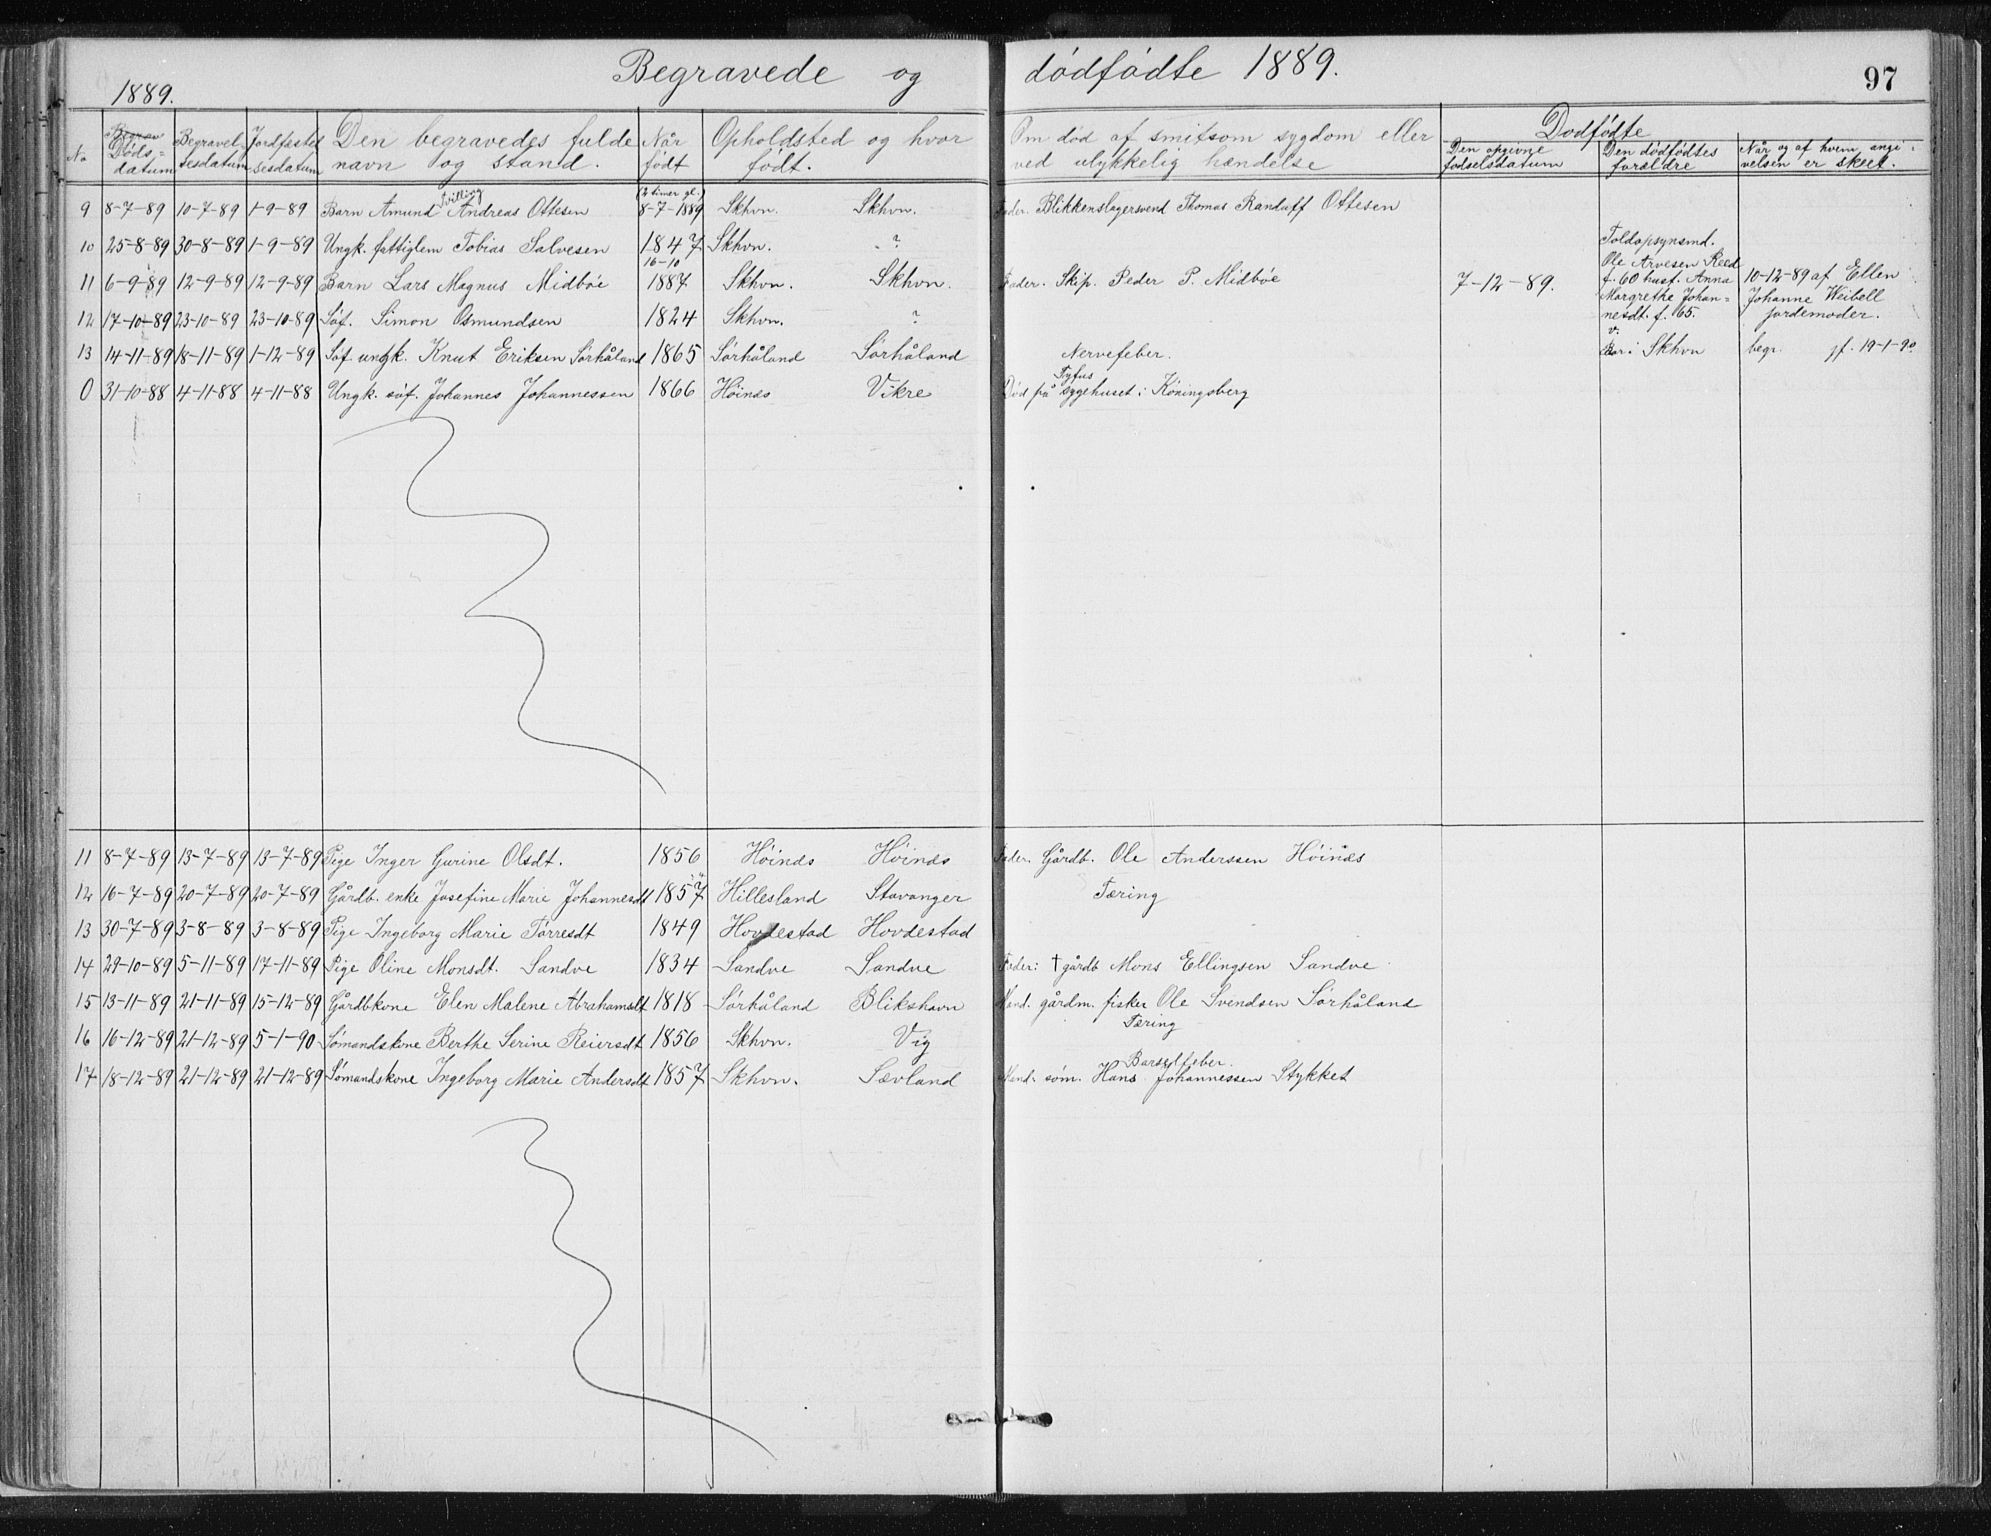 Begravede og dödfödte 1889.
97
1889.
No
Begrav Döds-datum
Begravelsesdatum
Jordfæstelsesdatum
Den begravedes fulde navn og stand.
Når födt
Opholdsted og hvor födt.
Om död af smitsom sygdom eller ved ulykkelig hændelse
Dödfödte
Den opgivne födselsdatum
Den dödfödtes forældre
Når og af hvem angivelsen er skeet.
9 8-7-89 10-7-89 1-9-89 Barn Amund Andreas Ottesen Tvilling (2 timer gl.) 8-7-1889 Skhvn. Skhvn. Fader. Blikkenslagersvend Thomas Randulff Ottesen
10 25-8-89 30-8-89 1-9-89 Ungk. fattiglem Tobias Salvesen 1847 Skhvn. ?
11 6-9-89 12-9-89 12-9-89 Barn Lars Magnus Midböe 16-10 1887 Skhvn. Skhvn. Fader. Skip. Peder P. Midböe
7-12-89.
Toldopsynsmd.
Ole Arvesen Reed
f. 60 hust. Anna
Margrethe Johan=
nesdt. f. 65.
Bor i Skhvn
10-12-89 af Ellen
Johanne Weibell
jordemoder.
begr. jf. 19-1-90
12 17-10-89 23-10-89 23-10-89 Söf. Simon Osmundsen 1824 Skhvn. ?
13 14-11-89 18-11-89 1-12-89 Söf. ungk. Knut Eriksen Sörhåland 1865 Sörhåland Sörhåland Nervefeber.
0 31-10-88 4-11-88 4-11-88 Ungk. söf. Johannes Johannessen 1866 Höinæs Vikre Tyfus Död på sygehuset i Köningsberg
11 8-7-89 13-7-89 13-7-89 Pige Inger Gurine Olsdt. 1856 Höinæs Höinæs Fader. Gårdb. Ole Anderssen Höinæs
12 16-7-89 20-7-89 20-7-89 Gårdb. enke Josefine Marie Johannesdt 1857 Hillesland Stavanger Tæring
13 30-7-89 3-8-89 3-8-89 Pige Ingeborg Marie Törresdt 1849 Hovdestad Hovdestad
14 29-10-89 5-11-89 17-11-89 Pige Oline Monsdt. Sandve 1834 Sandve Sandve Fader: † gårdb Mons Ellingsen Sandve
15 13-11-89 21-11-89 15-12-89 Gårdbkone Elen Malene Abrahamsdt 1818 Sörhåland Blikshavn Mand. gårdm. fisker Ole Svendsen Sörhåland
16 16-12-89 21-12-89 5-1-90 Sömandskone Berthe Serine Reiersdt 1856 Skhvn. Vig Tæring
17 18-12-89 21-12-89 21-12-89 Sömandskone Ingeborg Marie Andersdt 1857 Skhvn. Sævland Barselfeber. Mand. söm. Hans Johannessen Stykket